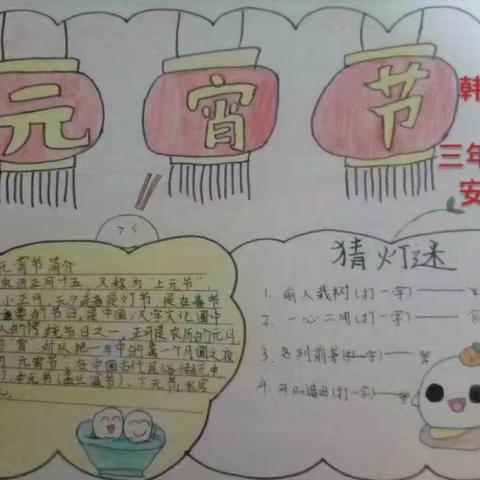 元宵节
韩
三年
安
元宵节简介
正月十五，又称为"上元节"，
小正月、元夕或灯节，是在春节
重要的节日，是中国汉字文化圈中
人的传统节日之一，正月是农历的元月
宵，所以把一年中的第一个月圆之夜
元宵节，在中国古代
中元节（盂兰盆节），下元节
猜灯谜
1. 前人栽树（打一字）——
2. 一心二用（打一字）——
3. 名列前茅（打一字）——
4. 开山造田（打一字）——